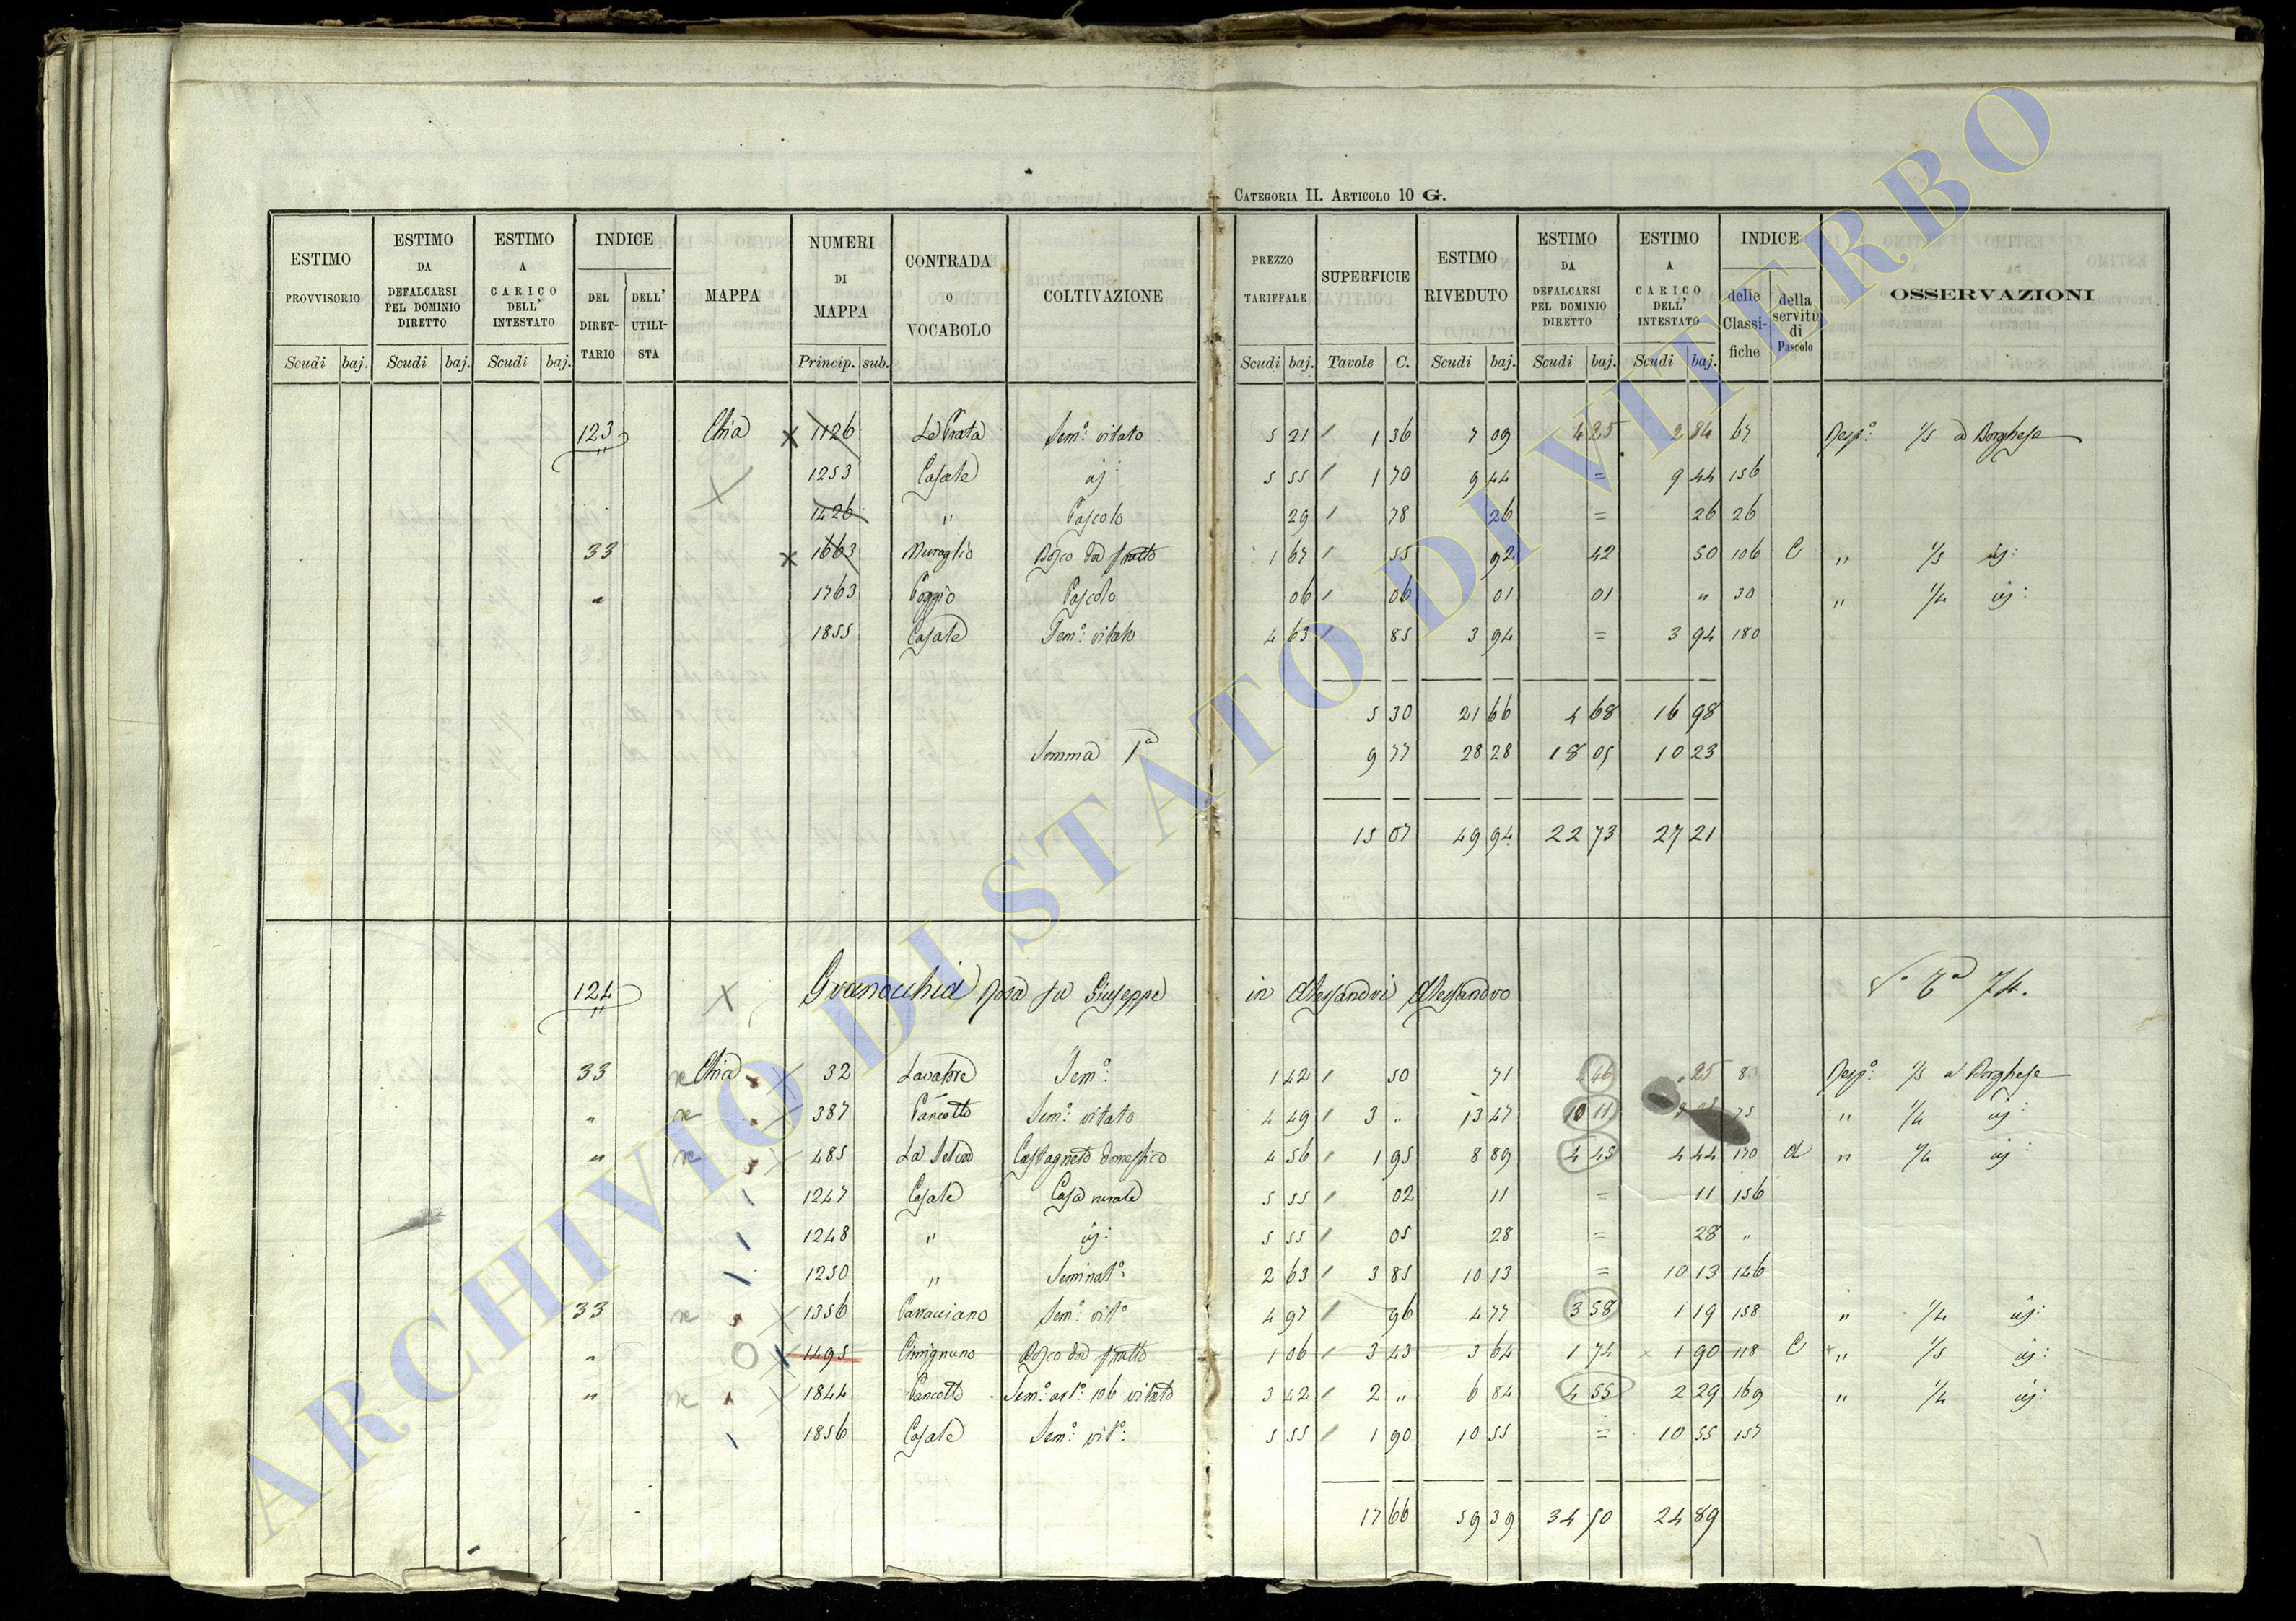 CATEGORIA II. ARTICOLO 10 G.
ESTIMO PROVVISORIO
ESTIMO DA DEFALCARSI PEL DOMINIO DIRETTO
ESTIMO A CARICO DELL' INTESTATO
INDICE
DEL DIRET-TARIO
DELL' UTILI-STA
MAPPA
NUMERI DI MAPPA
CONTRADA O VOCABOLO
COLTIVAZIONE
PREZZO TARIFFALE
SUPERFICIE
ESTIMO RIVEDUTO
ESTIMO DA DEFALCARSI PEL DOMINIO DIRETTO
ESTIMO A CARICO DELL' INTESTATO
INDICE
delle Classi-fiche
della servitù di Pascolo
OSSERVAZIONI
Scudi baj. Scudi baj. Scudi baj. Princip. sub. Scudi baj. Tavole C. Scudi baj. Scudi baj. Scudi baj.
123 Chia x 1126 Sem.° vitato 5 21 1 36 7 09 4 25 2 84 67 Resp.° 1/5 a Borghese
1253 Casale id: 5 55 1 70 9 44 = 9 44 156
1426 " Pascolo 29 78 26 = 26 26
33 x 1663 Bosco da frutto 1 67 55 92 42 50 106 C " 1/5 id:
" 1763 Poggio Pascolo 06 06 01 01 " 30 " 1/4 id:
1855 Casale Sem.° vitato 4 63 85 3 94 = 3 94 180
5 30 21 66 4 68 16 98
Somma 1ª 9 77 28 28 18 05 10 23
15 07 49 94 22 73 27 21
124 x Granocchia Rosa fu Giuseppe in Alessandri Alessandro 74.
33 Chia 32 Lavatore Sem.° 1 42 50 71 46 25 Resp.° 1/5 a Borghese
" 387 Pancotto Sem.° vitato 4 49 3 " 13 47 10 11 " 1/4 id:
" 485 La Selva Castagneto domestico 4 56 1 95 8 89 4 45 4 44 170 d " 1/4 id:
1247 Casale Casa rurale 5 55 02 11 = 11 156
1248 " id: 5 55 05 28 = 28 "
1250 " Seminat.° 2 63 3 85 10 13 = 10 13 146
33 1356 Sem.° vit.° 4 97 96 4 77 3 58 1 19 158 " 1/4 id:
" 1495 Cimignano Bosco da frutto 1 06 3 43 3 64 1 74 1 90 118 C " 1/5 id:
" 1844 Pancotto Sem.° art.° 106 vitato 3 42 2 " 6 84 4 55 2 29 169 " 1/4 id:
1856 Casale Sem.° vit.° 5 55 1 90 10 55 = 10 55 157
17 66 59 39 34 50 24 89
ARCHIVIO DI STATO DI VITERBO